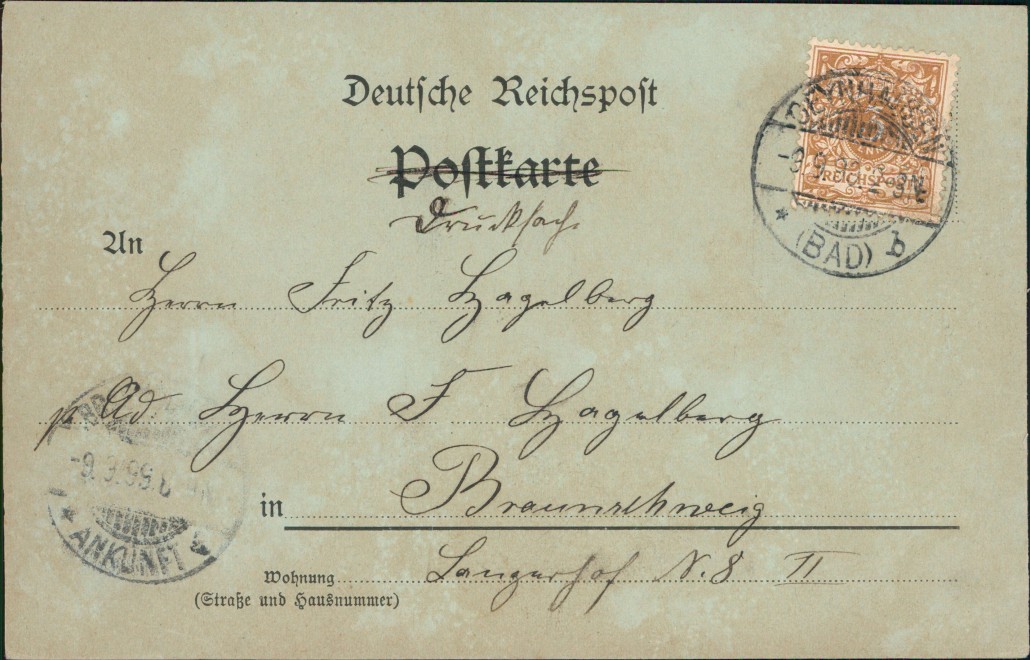 Deutsche Reichspost
Postkarte
Drucksach.
An
Herrn Fritz Hagelberg
Ad. Herrn F Hagelberg
in Braunschweig
Wohnung Langerhof N. 8 II
(Straße und Hausnummer)
REICHSPOST
OEYNHAUSEN
(BAD) b
ANKUNFT